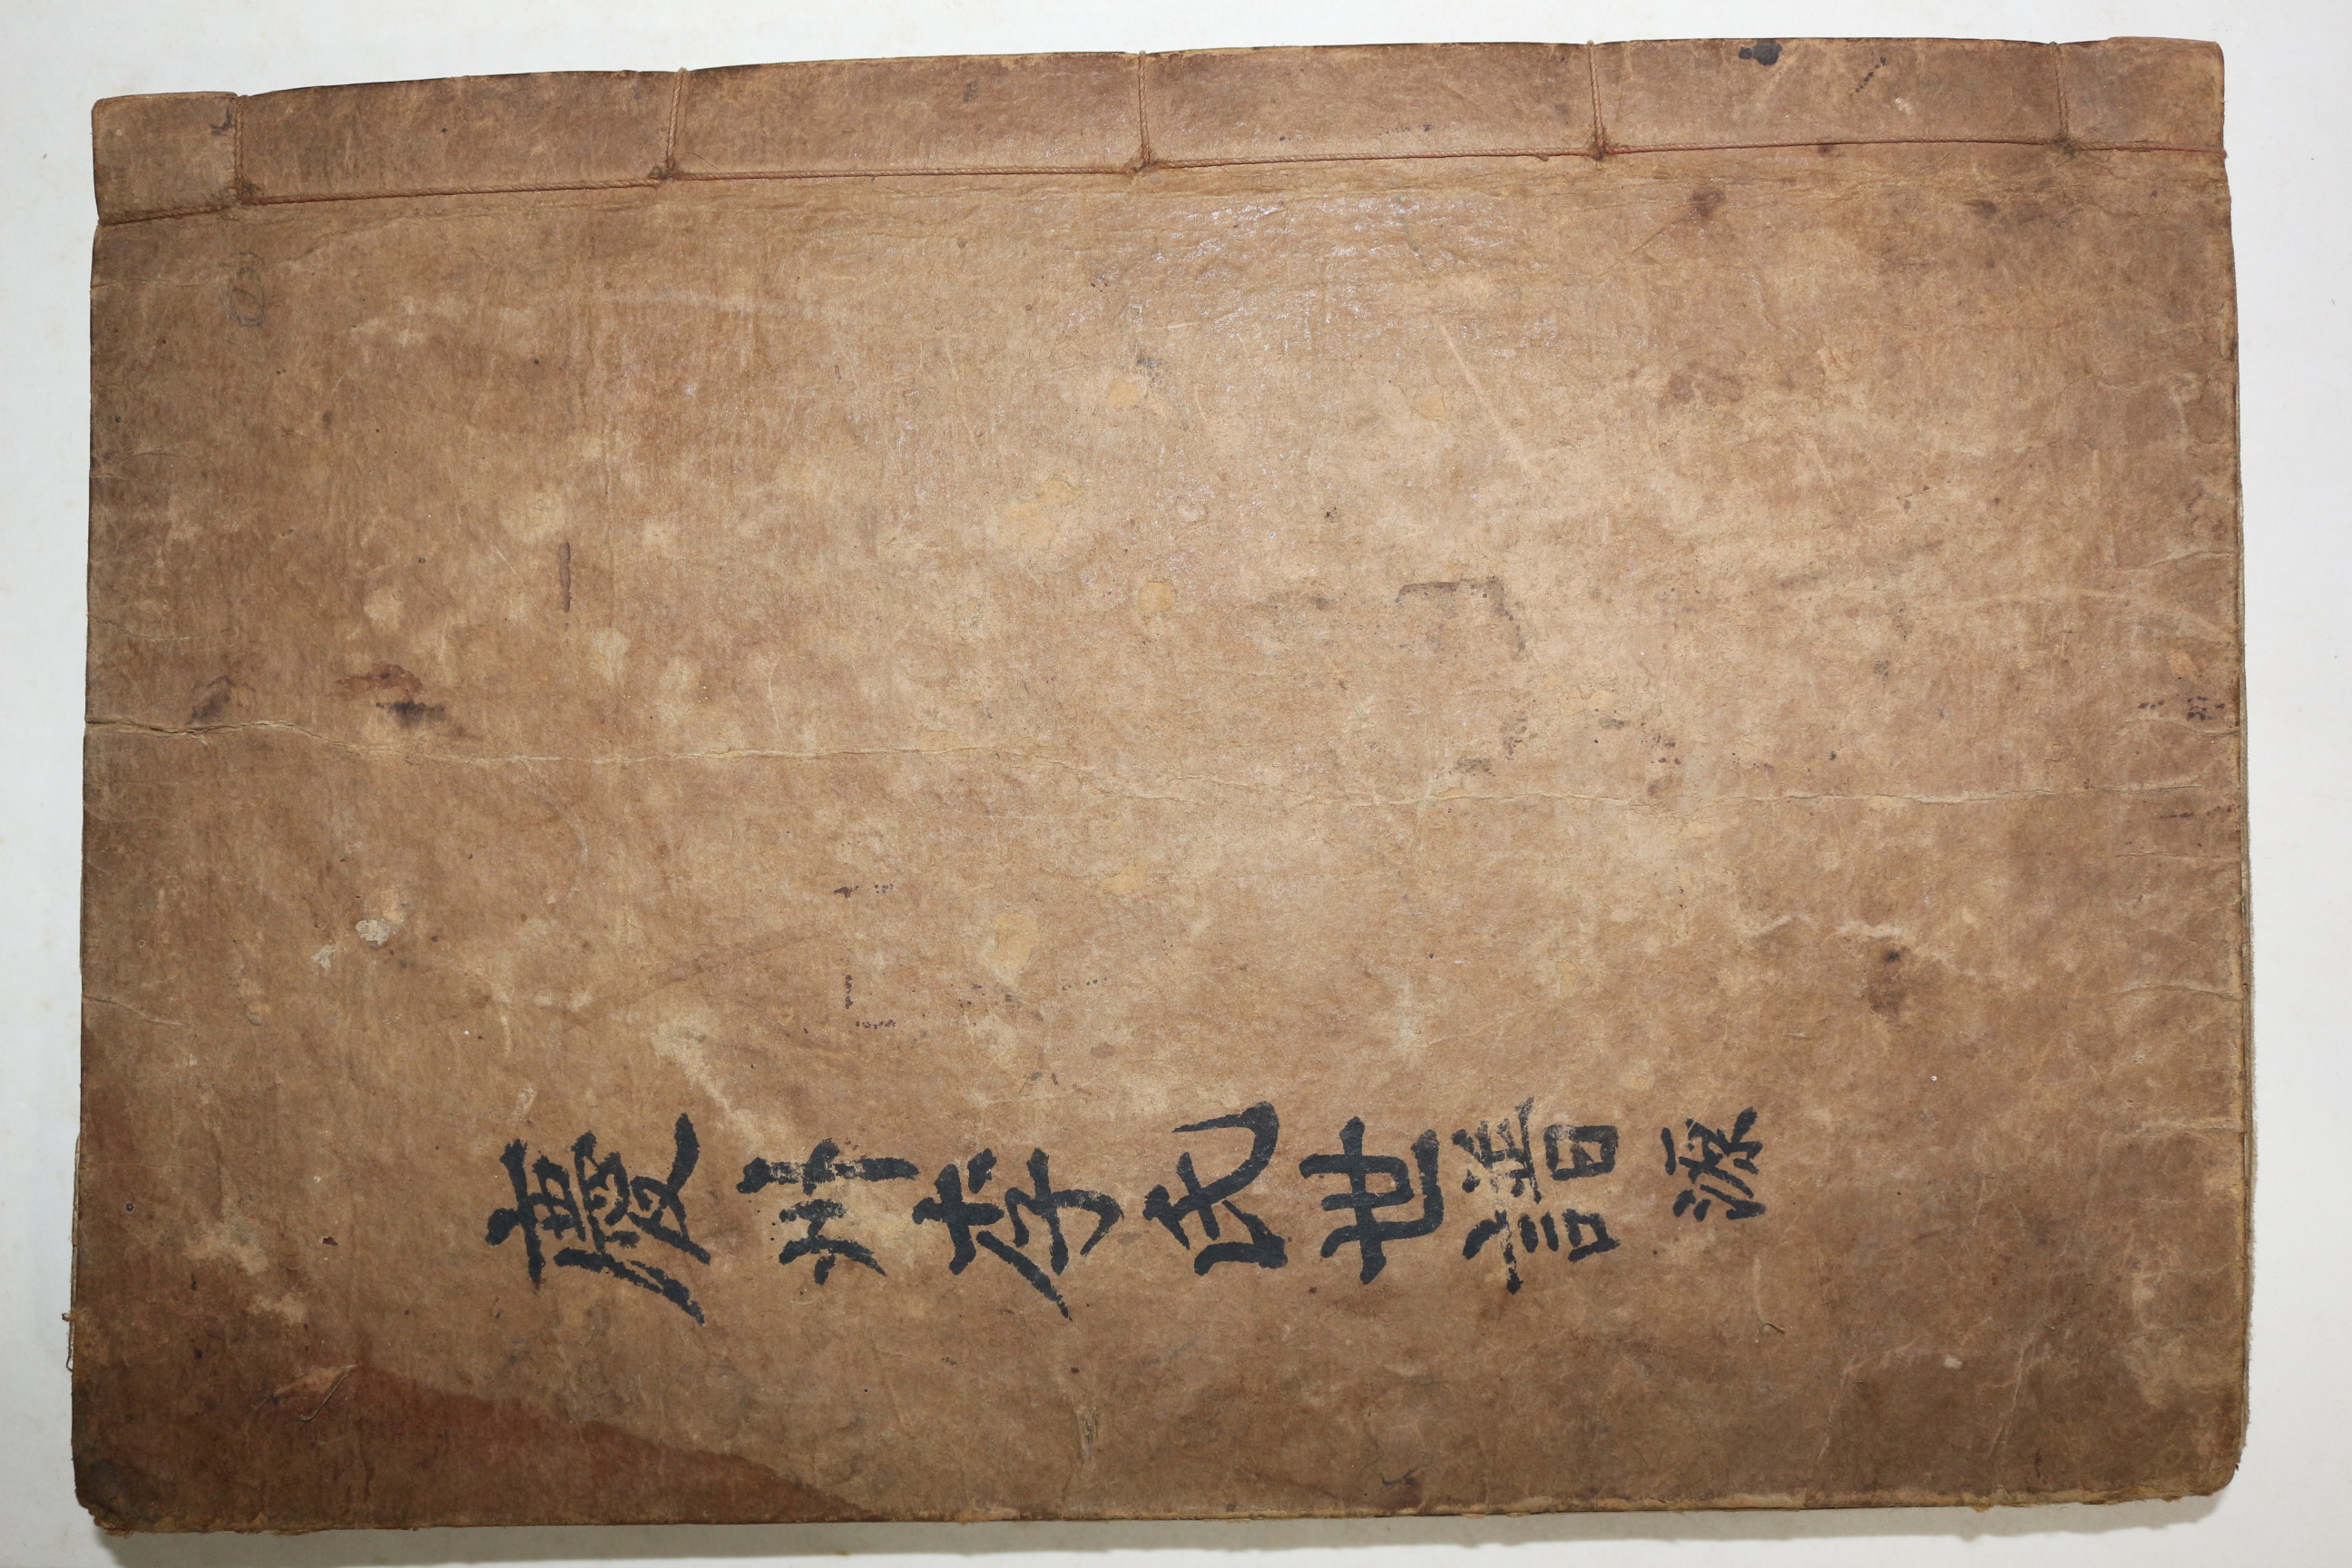 慶州李氏世譜 源